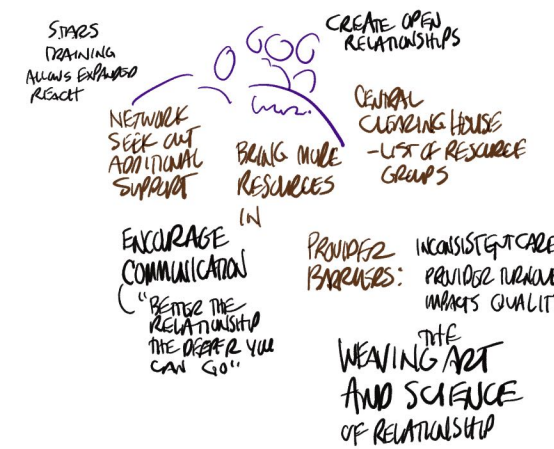 STARS
TRAINING
ALLOWS EXPANDED
REACH
CREATE OPEN
RELATIONSHIPS
NETWORK
SEEK OUT
ADDITIONAL
SUPPORT
BRING MORE
RESOURCES
IN
CENTRAL
CLEARING HOUSE
-LIST OF RESOURCE
GROUPS
ENCOURAGE
COMMUNICATION
"BETTER THE
RELATIONSHIP
THE DEEPER YOU
CAN GO"
PROVIDER
BARRIERS:
INCONSISTENT CARE
PROVIDER TURNOV
IMPACTS QUALIT
THE
WEAVING ART
AND SCIENCE
OF RELATIONSHIP